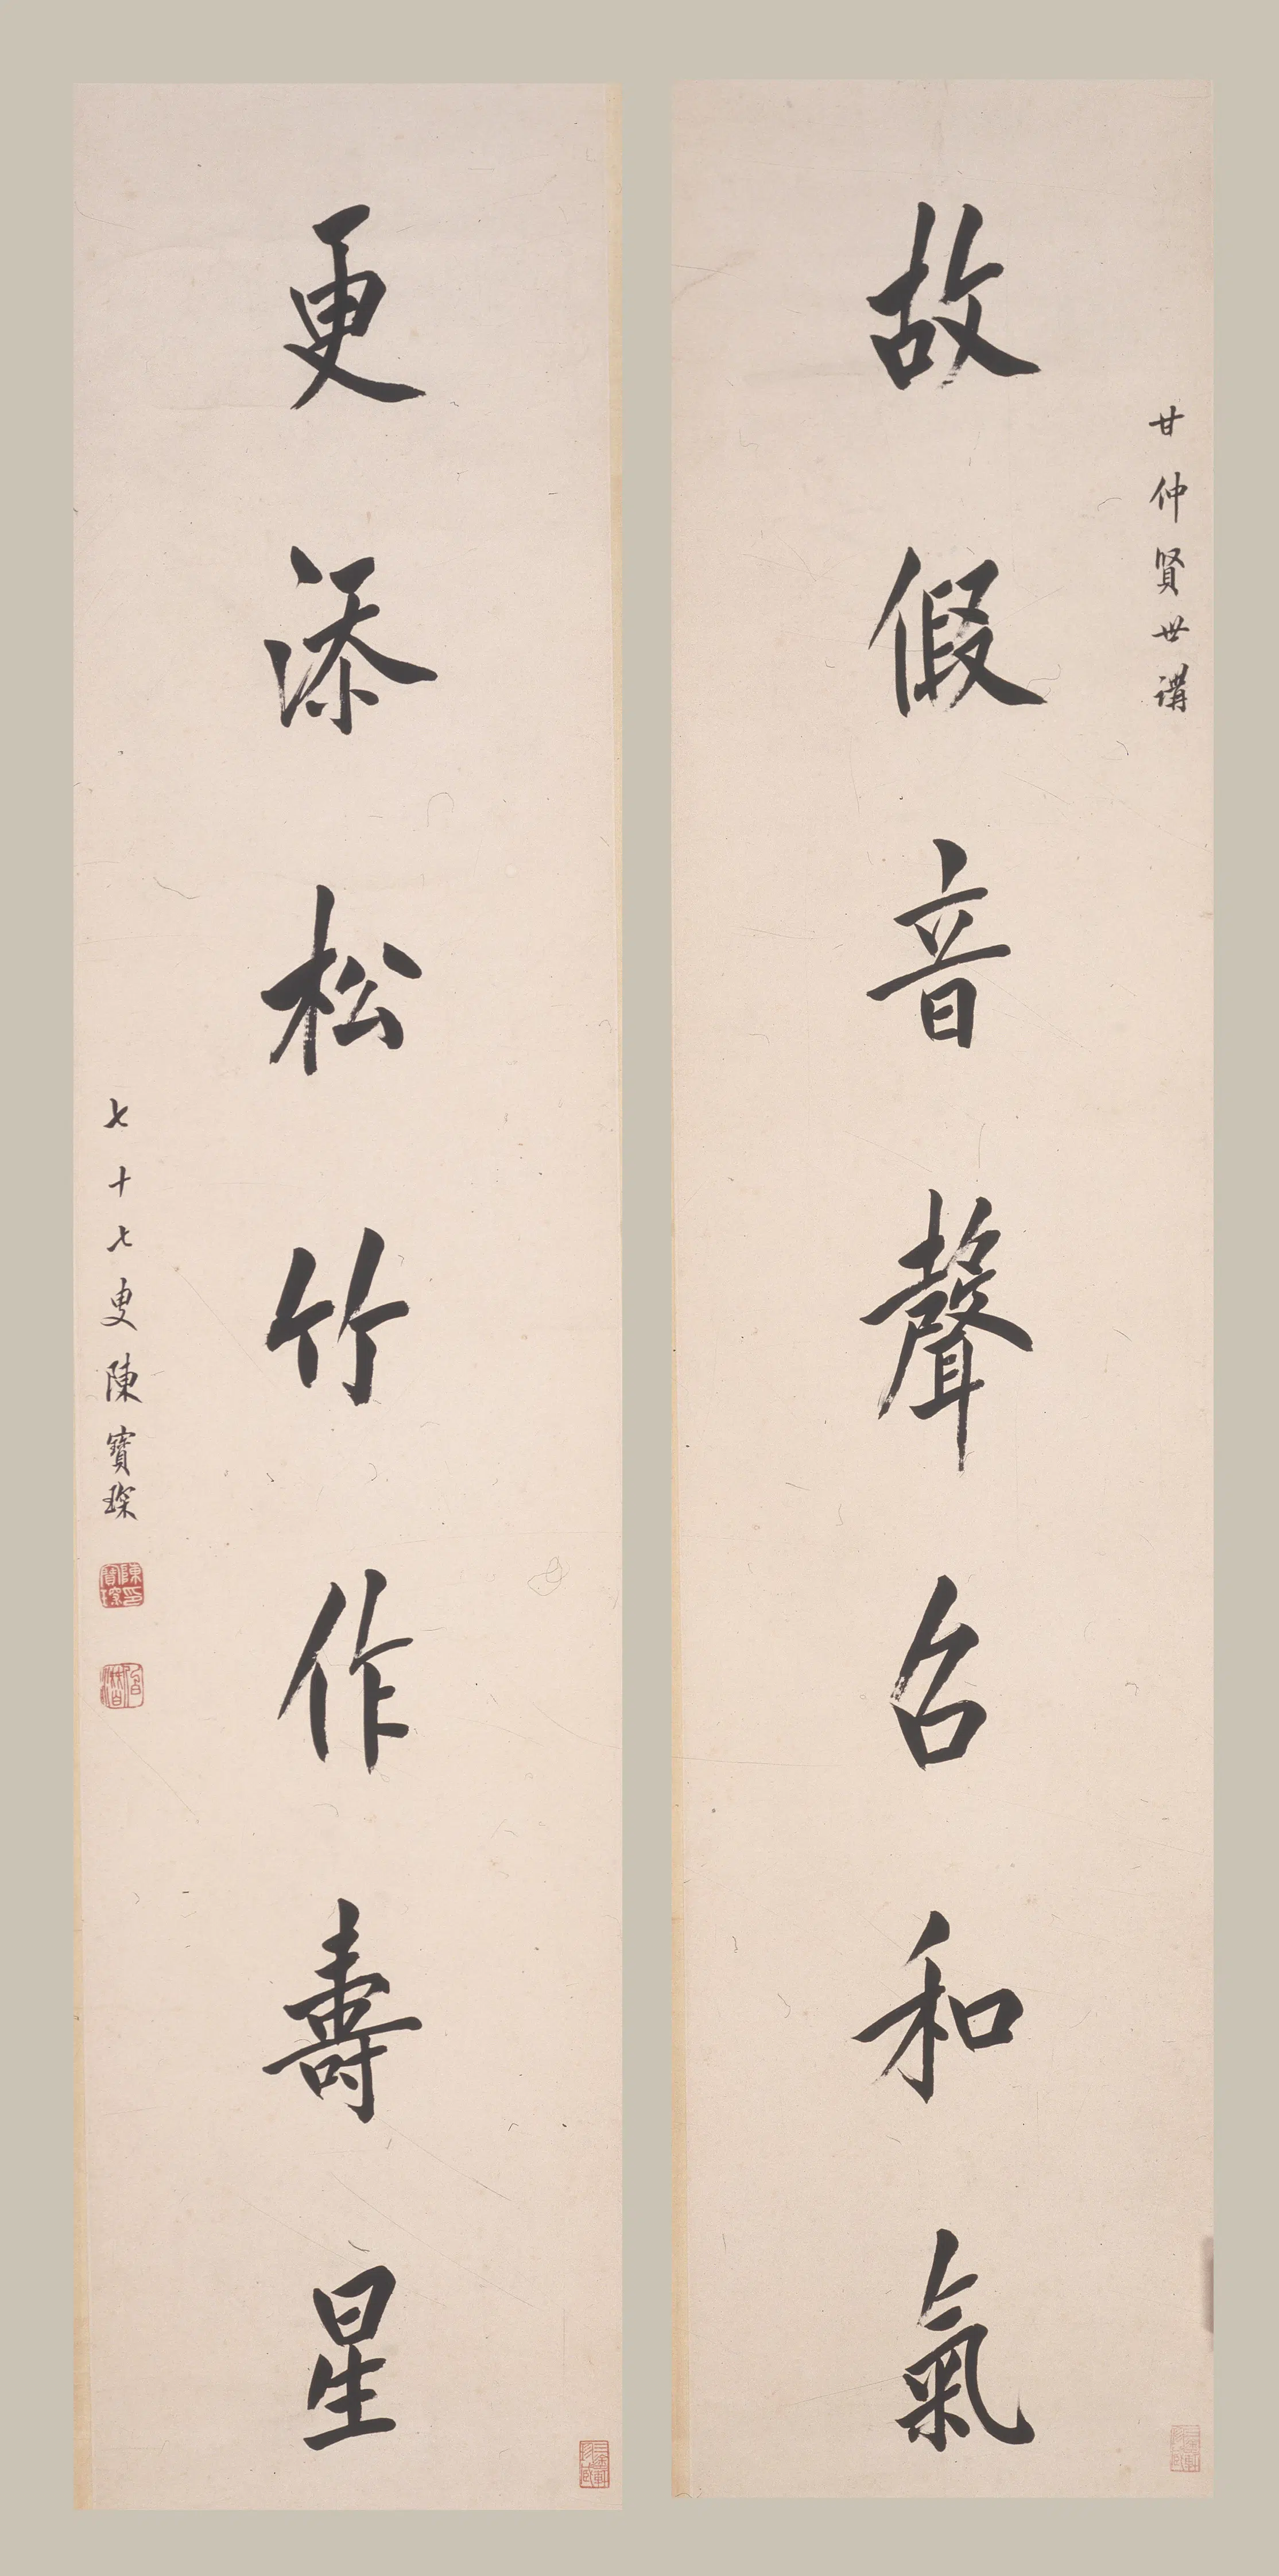 甘仲賢世講
故假音聲召和氣
更添松竹作壽星
七十七叟陳寶琛
陳寶琛印